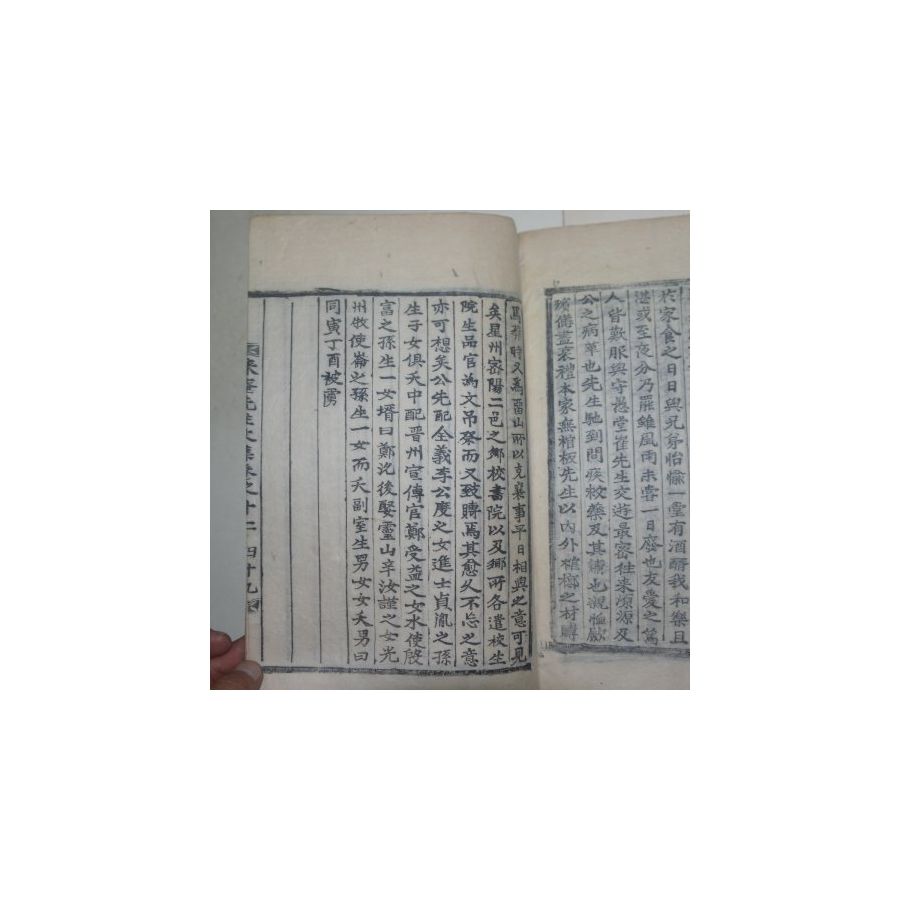 於家食之日日與兄弟怡愉一堂有酒醑我和樂且
湛或至夜分乃罷雖風雨未嘗一日廢也友愛之篤
人皆歎服與守愚堂崔先生交遊最密往來源源及
公之病革也先生馳到問疾救藥及其
備盡哀禮本家無棺板先生以內外棺槨之材賻
焉 時又爲 山所以支襄事平日相與之意可見
矣星州密陽二邑之鄉校書院以及鄉所各遣校生
院生品官爲文吊祭而又致賻焉其愈久不忘之意
亦可想矣公先配全義李公度之女進士貞胤之孫
生子女俱夭中配晋州宣傳官鄭受益之女水使殷
富之孫生一女壻曰鄭 後娶靈山辛汝謹之女光
州牧使崙之孫生一女而夭副室生男女女夭男曰
同寅丁酉被虜
先生文集卷之十二 四十九